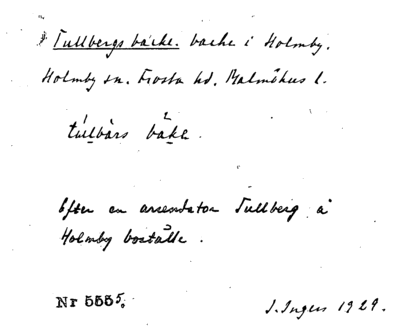 Tullbergs backe. backe i Holmby.
Holmby sn. Frosta hd. Malmöhus l.
túlbàrs bàkɐ.
Efter en arrendator Tullberg å
Holmby boställe.
Nr 5555.
I. Ingers 1929.